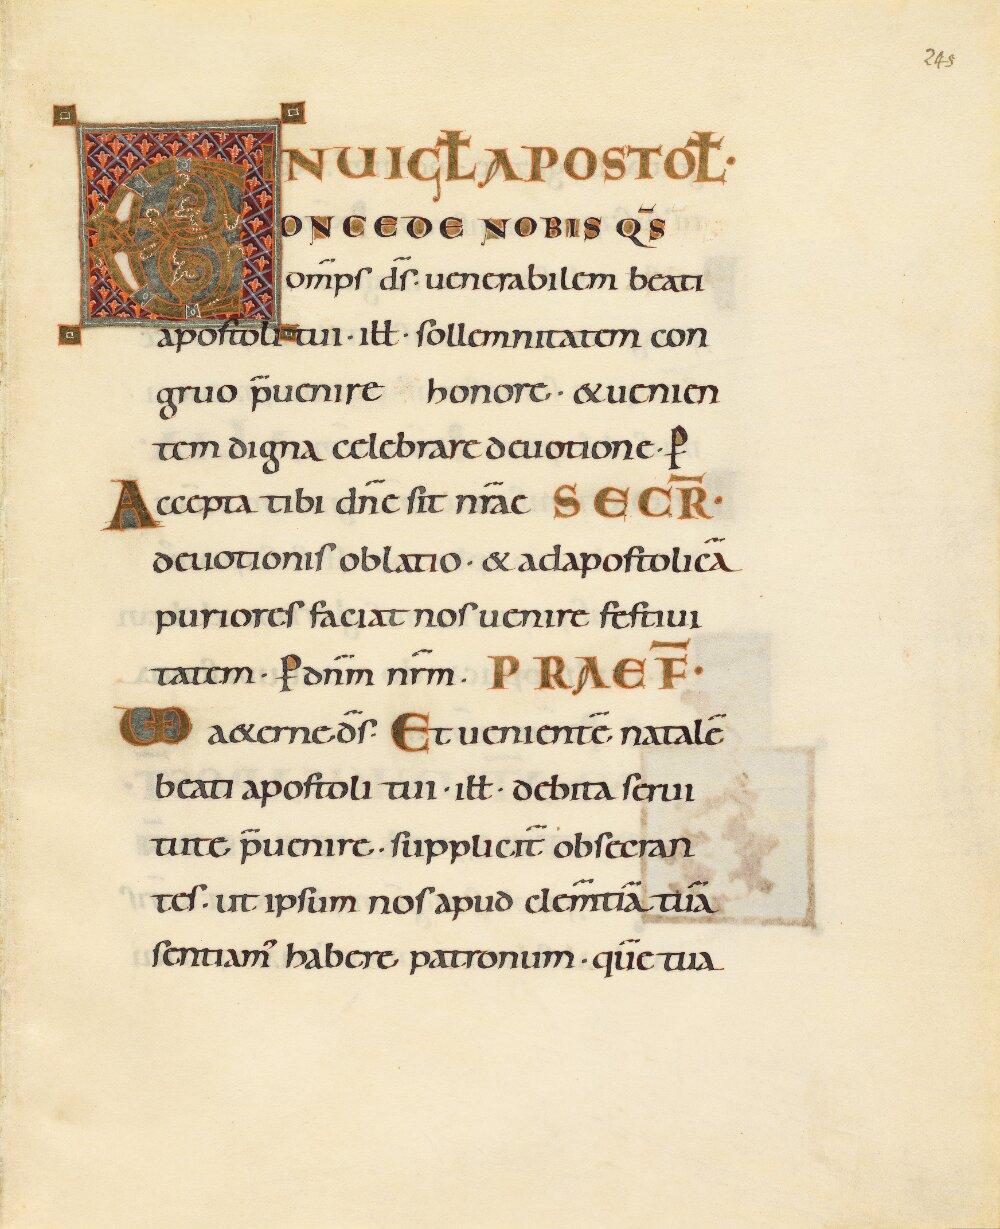 245
IN UIGL APOSTOL·
CONCEDE NOBIS QS̄
om̄ps d̄s· uenerabilem beati
apostoli tui · ill · sollemnitatem con
gruo p̄uenire honore · &uenien
tem digna celebrare deuotione · ꝑ
Accepta tibi dn̄e sit nr̄ae SECR̄·
deuotionis oblatio · & adapostolicā
puriores faciat nos uenire festiui
tatem · ꝑ dnm̄ nr̄m · PRAEF̄·
UD a&erne d̄s· Et uenientē natalē
beati apostoli tui · ill · debita serui
tute p̄uenire · suppliciт̄ obsecran
tes · ut ipsum nos apud clem̄tiā tuā
sentiamꝰ habere patronum · quē tua